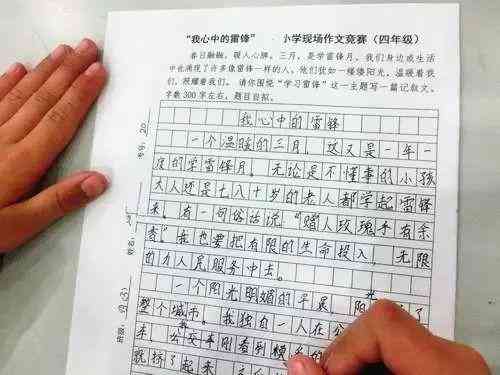 “我心中的雷锋” 小学现场作文竞赛（四年级）
春日融融，暖人心脾。三月，是学雷锋月。我们身边或生活
中也涌现了许多像雷锋一样的人，他们犹如一缕缕阳光，温暖着我
们，照耀着我们。请你围绕“学习雷锋”这一主题写一篇记叙文。
字数300字左右，题目自拟。
我心中的雷锋
一个温暖的三月，这又是一年一
度的学雷锋月。无论是不懂事的小孩
大人还是七八十岁的老人都学起雷锋
来。有一句俗话说：“赠人玫瑰手有余
香。”我也要把有限的生命投入，无限
的为人民服务中去。
一个阳光明媚的早晨，阳光
整个城市。我独自一人在公
来，公交车刚看到
就挤了起来
考号：20
姓名：
班级：四(3)